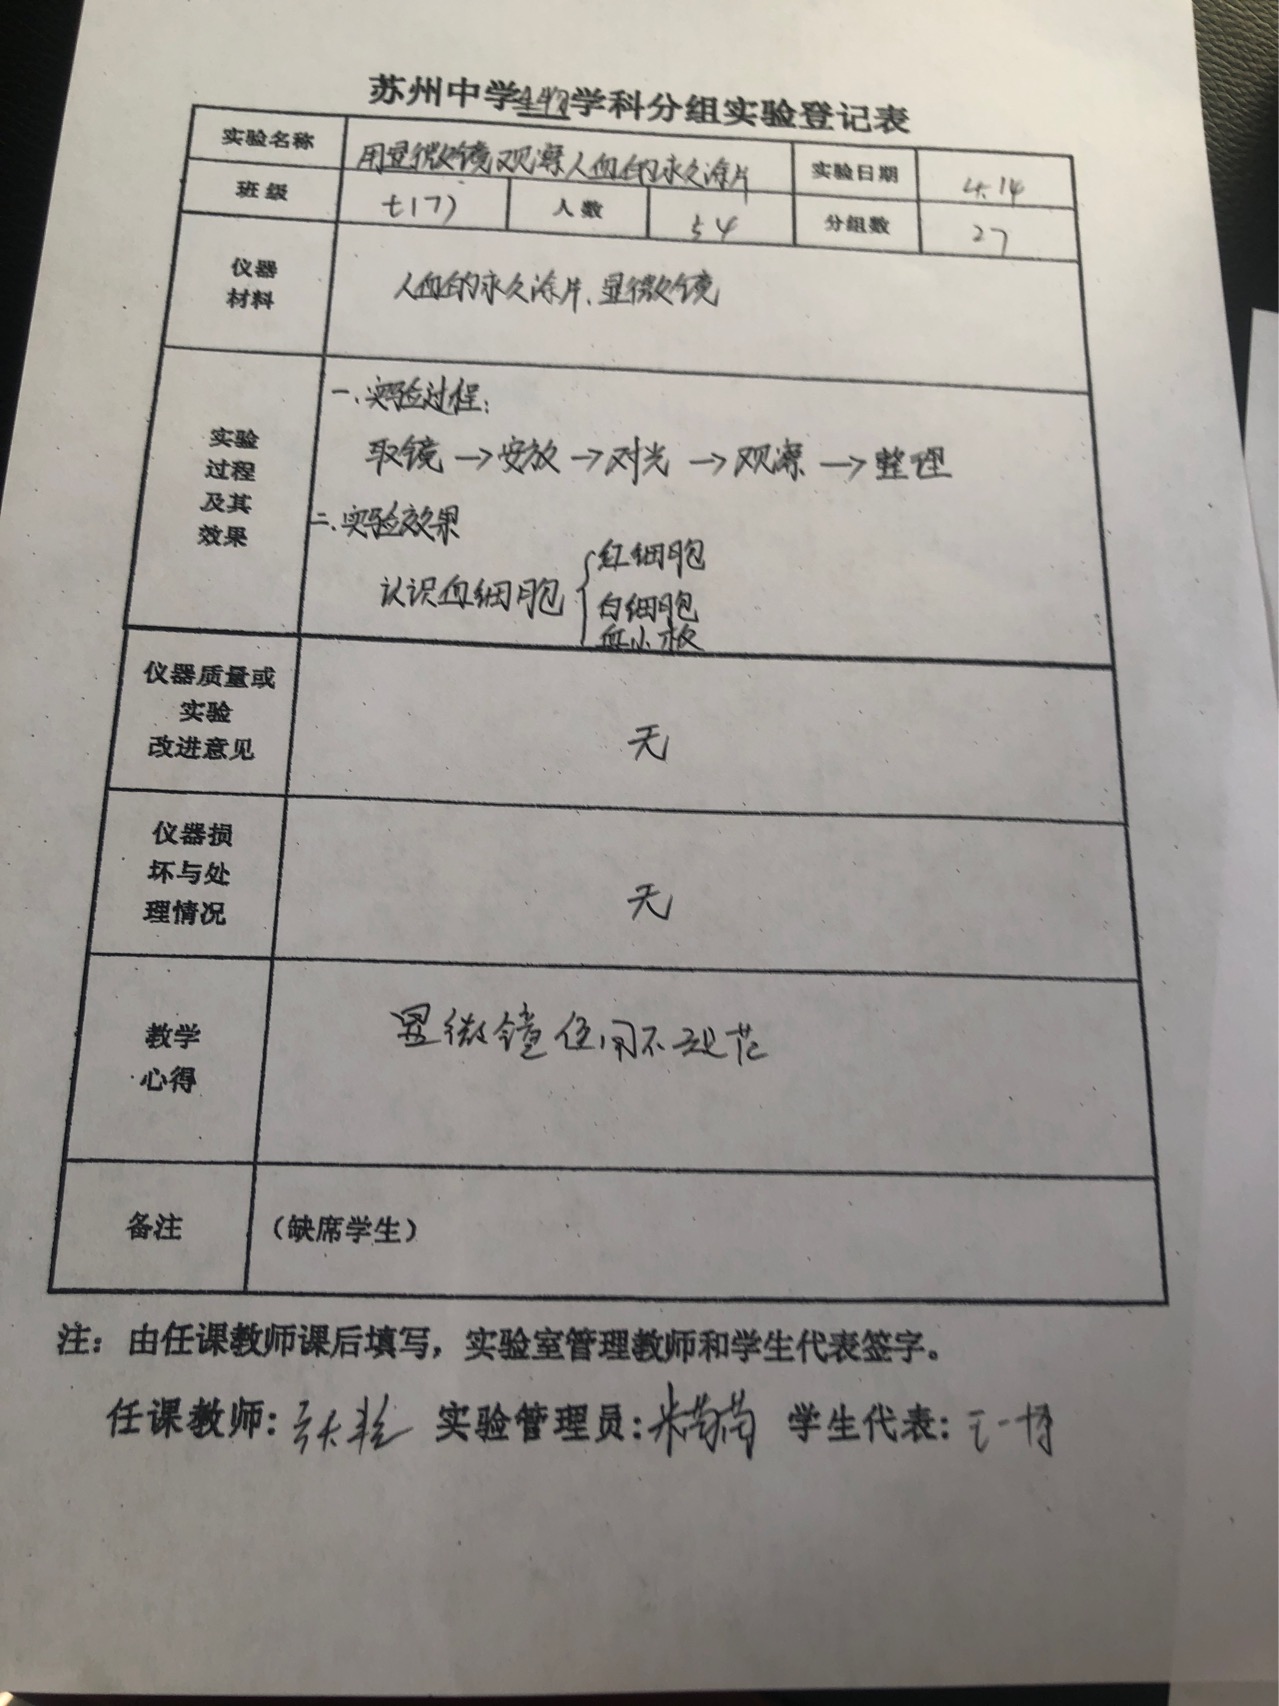 苏州中学生物学科分组实验登记表
实验名称 用显微镜观察人血的永久涂片 实验日期 4.14
班级 七(7) 人数 54 分组数 27
仪器
材料
人血的永久涂片、显微镜
实验
过程
及其
效果
一、实验过程：
取镜→安放→对光→观察→整理
二、实验效果
认识血细胞
红细胞
白细胞
血小板
仪器质量或
实验
改进意见
无
仪器损
坏与处
理情况
无
教学
心得
显微镜使用不规范
备注 （缺席学生）
注：由任课教师课后填写，实验室管理教师和学生代表签字。
任课教师： 实验管理员： 学生代表：